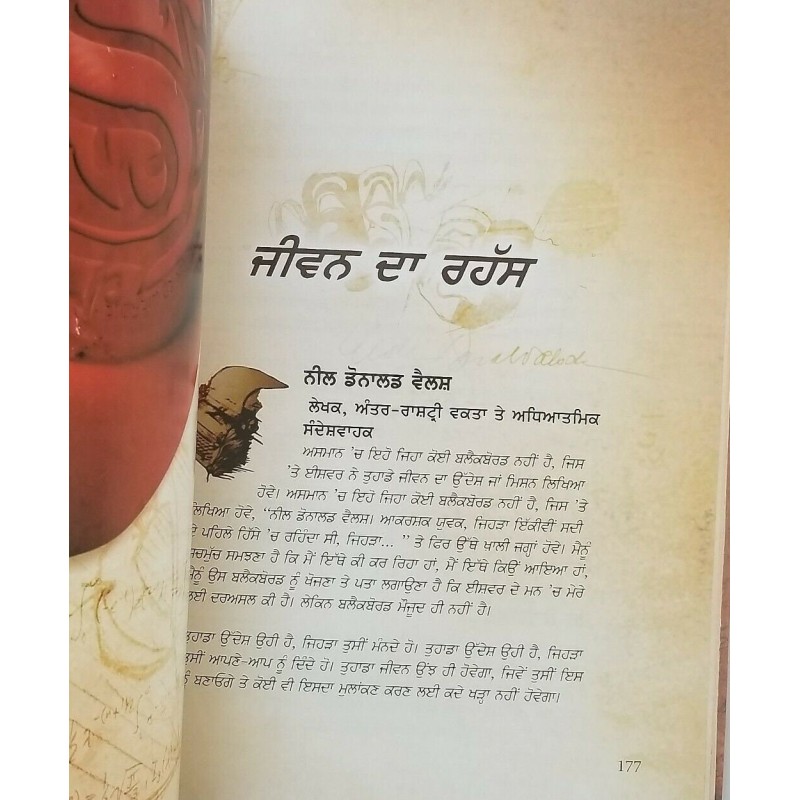 ਜੀਵਨ ਦਾ ਰਹੱਸ
ਨੀਲ ਡੋਨਾਲਡ ਵੈਲਸ਼
ਲੇਖਕ, ਅੰਤਰ-ਰਾਸ਼ਟ੍ਰੀ ਵਕਤਾ ਤੇ ਅਧਿਆਤਮਿਕ
ਸੰਦੇਸ਼ਵਾਹਕ
ਅਸਮਾਨ 'ਚ ਇਹੋ ਜਿਹਾ ਕੋਈ ਬਲੈਕਬੋਰਡ ਨਹੀਂ ਹੈ, ਜਿਸ
'ਤੇ ਈਸ਼ਵਰ ਨੇ ਤੁਹਾਡੇ ਜੀਵਨ ਦਾ ਉੱਦੇਸ਼ ਜਾਂ ਮਿਸ਼ਨ ਲਿਖਿਆ
ਹੋਵੇ। ਅਸਮਾਨ 'ਚ ਇਹੋ ਜਿਹਾ ਕੋਈ ਬਲੈਕਬੋਰਡ ਨਹੀਂ ਹੈ, ਜਿਸ 'ਤੇ
ਲਿਖਿਆ ਹੋਵੇ, "ਨੀਲ ਡੋਨਾਲਡ ਵੈਲਸ਼। ਆਕਰਸ਼ਕ ਯੁਵਕ, ਜਿਹੜਾ ਇੱਕੀਵੀਂ ਸਦੀ
ਦੇ ਪਹਿਲੇ ਹਿੱਸੇ 'ਚ ਰਹਿੰਦਾ ਸੀ, ਜਿਹੜਾ... " ਤੇ ਫਿਰ ਉੱਥੇ ਖਾਲੀ ਜਗ੍ਹਾਂ ਹੋਵੇ। ਮੈਨੂੰ
ਸਚਮੁੱਚ ਸਮਝਣਾ ਹੈ ਕਿ ਮੈਂ ਇੱਥੇ ਕੀ ਕਰ ਰਿਹਾ ਹਾਂ, ਮੈਂ ਇੱਥੇ ਕਿਉਂ ਆਇਆ ਹਾਂ,
ਮੈਨੂੰ ਉਸ ਬਲੈਕਬੋਰਡ ਨੂੰ ਖੋਜਣਾ ਤੇ ਪਤਾ ਲਗਾਉਣਾ ਹੈ ਕਿ ਈਸ਼ਵਰ ਦੇ ਮਨ 'ਚ ਮੇਰੇ
ਲਈ ਦਰਅਸਲ ਕੀ ਹੈ। ਲੇਕਿਨ ਬਲੈਕਬੋਰਡ ਮੌਜੂਦ ਹੀ ਨਹੀਂ ਹੈ।
ਤੁਹਾਡਾ ਉੱਦੇਸ਼ ਉਹੀ ਹੈ, ਜਿਹੜਾ ਤੁਸੀਂ ਮੰਨਦੇ ਹੋ। ਤੁਹਾਡਾ ਉੱਦੇਸ਼ ਉਹੀ ਹੈ, ਜਿਹੜਾ
ਤੁਸੀਂ ਆਪਣੇ-ਆਪ ਨੂੰ ਦਿੰਦੇ ਹੋ। ਤੁਹਾਡਾ ਜੀਵਨ ਉੰਝ ਹੀ ਹੋਵੇਗਾ, ਜਿਵੇਂ ਤੁਸੀਂ ਇਸ
ਨੂੰ ਬਣਾਓਗੇ ਤੇ ਕੋਈ ਵੀ ਇਸਦਾ ਮੁਲਾਂਕਣ ਕਰਣ ਲਈ ਕਦੇ ਖੜ੍ਹਾ ਨਹੀਂ ਹੋਵੇਗਾ।
177